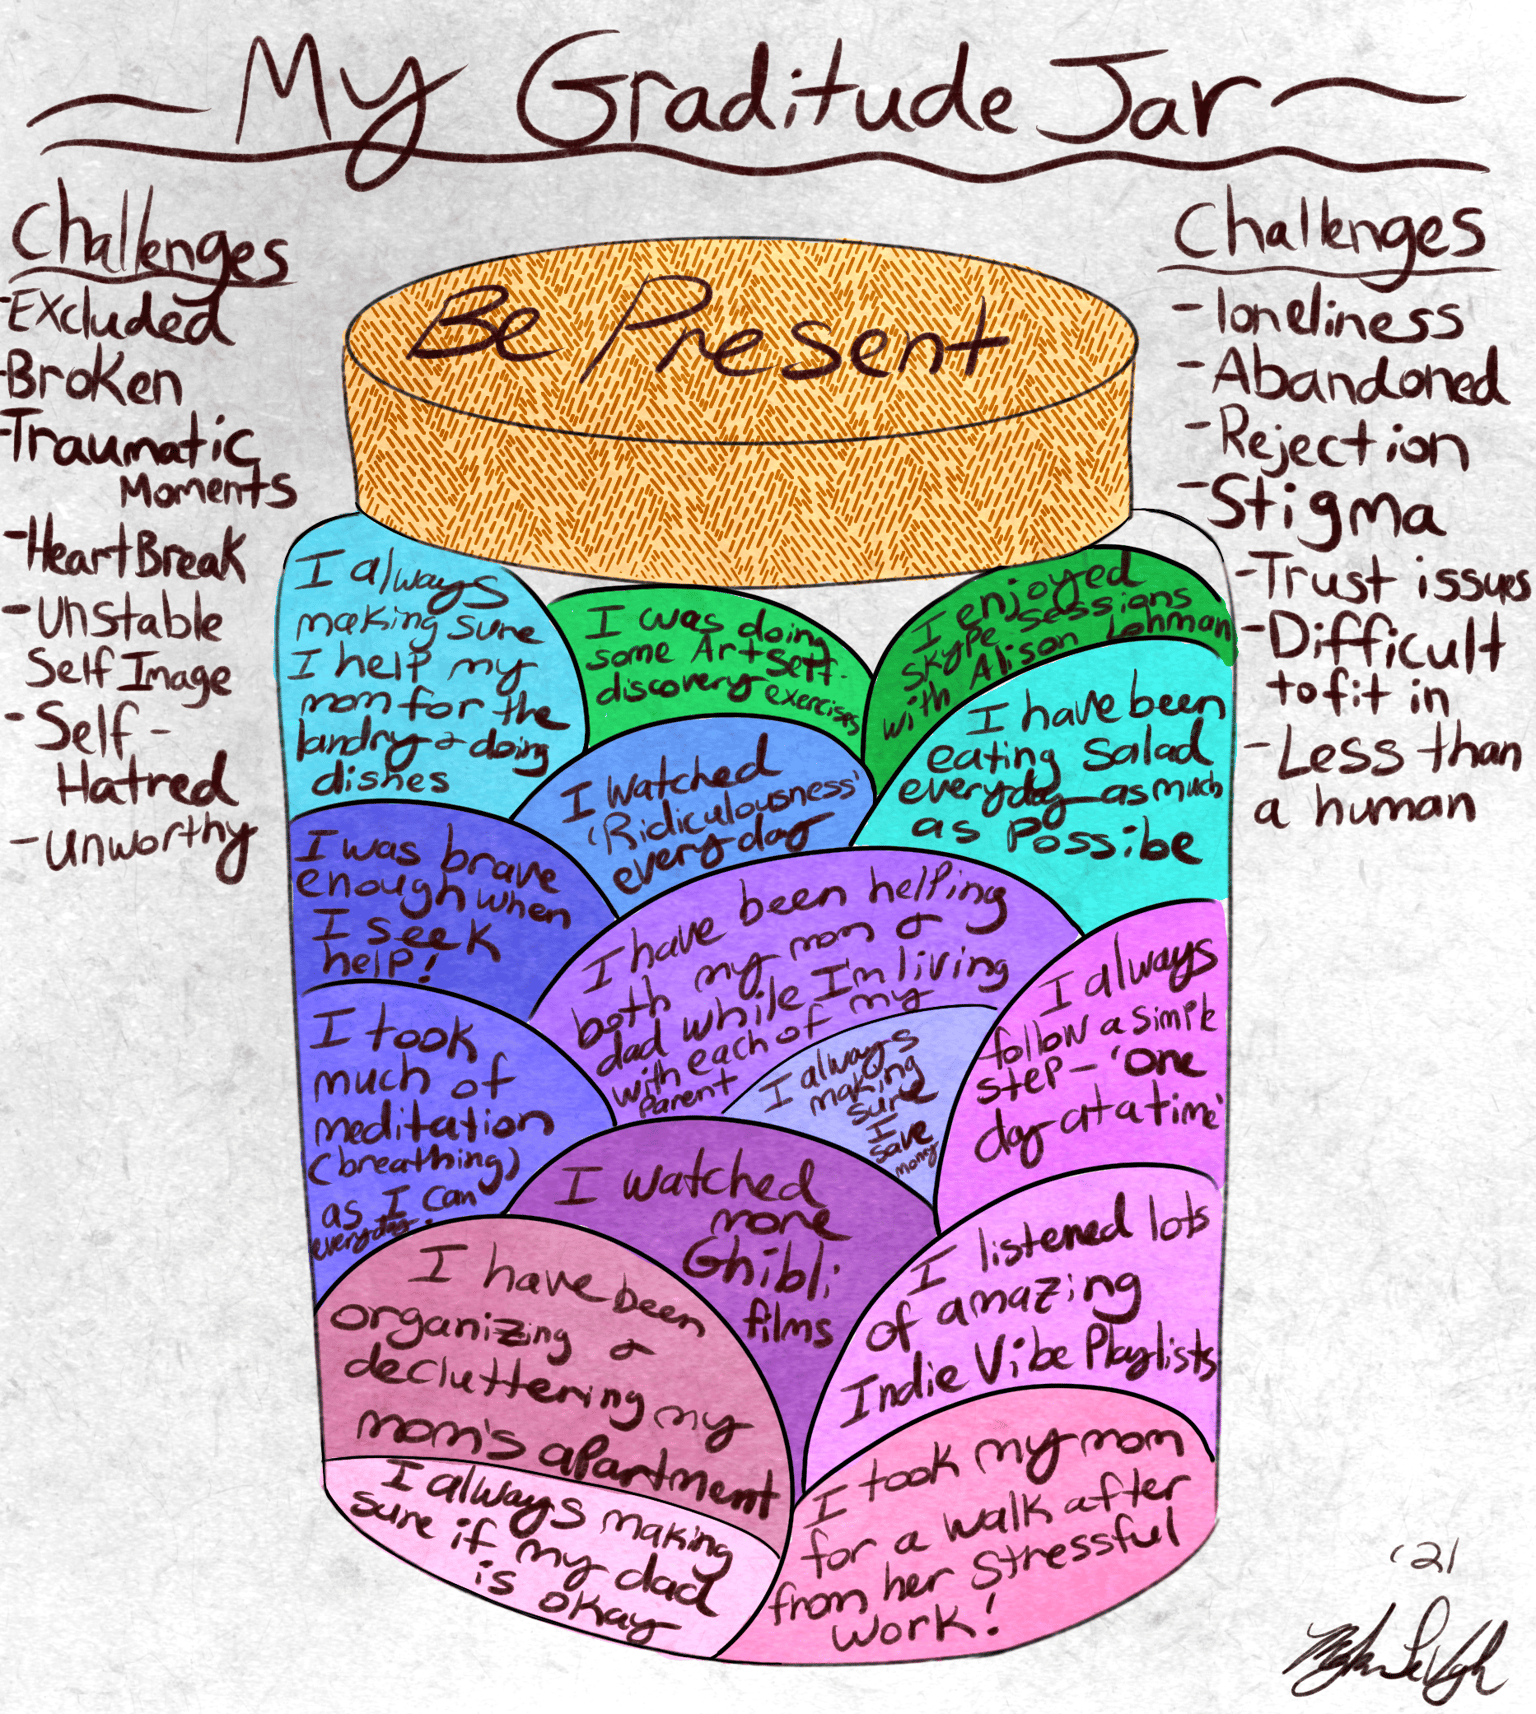 My Graditude Jar
Challenges
-Excluded
-Broken
-Traumatic
Moments
-HeartBreak
-Unstable
Self Image
-Self-
Hatred
-Unworthy
Challenges
-loneliness
-Abandoned
-Rejection
-Stigma
-Trust issues
-Difficult
to fit in
-Less than
a human
Be Present
I always
making sure
I help my
mom for the
landry & doing
dishes
I was doing
some Art Self-
discovery exercises
I enjoyed
skype sessions
with Alison Lohman
I watched
'Ridiculousness'
everyday
I have been
eating salad
everyday as much
as possibe
I was brave
enough when
I seek
help!
I have been helping
both my mom &
dad while I'm living
with each of my
parent
I always
follow a simple
step - 'One
day at a time'
I took
much of
meditation
(breathing)
as I can
everyday.
I always
making
sure
I
save
money
I watched
more
Ghibli
films
I listened lots
of amazing
Indie Vibe Playlists
I have been
organizing &
decluttering my
mom's apartment
I always making
sure if my dad
is okay
I took my mom
for a walk after
from her stressful
work!
'21